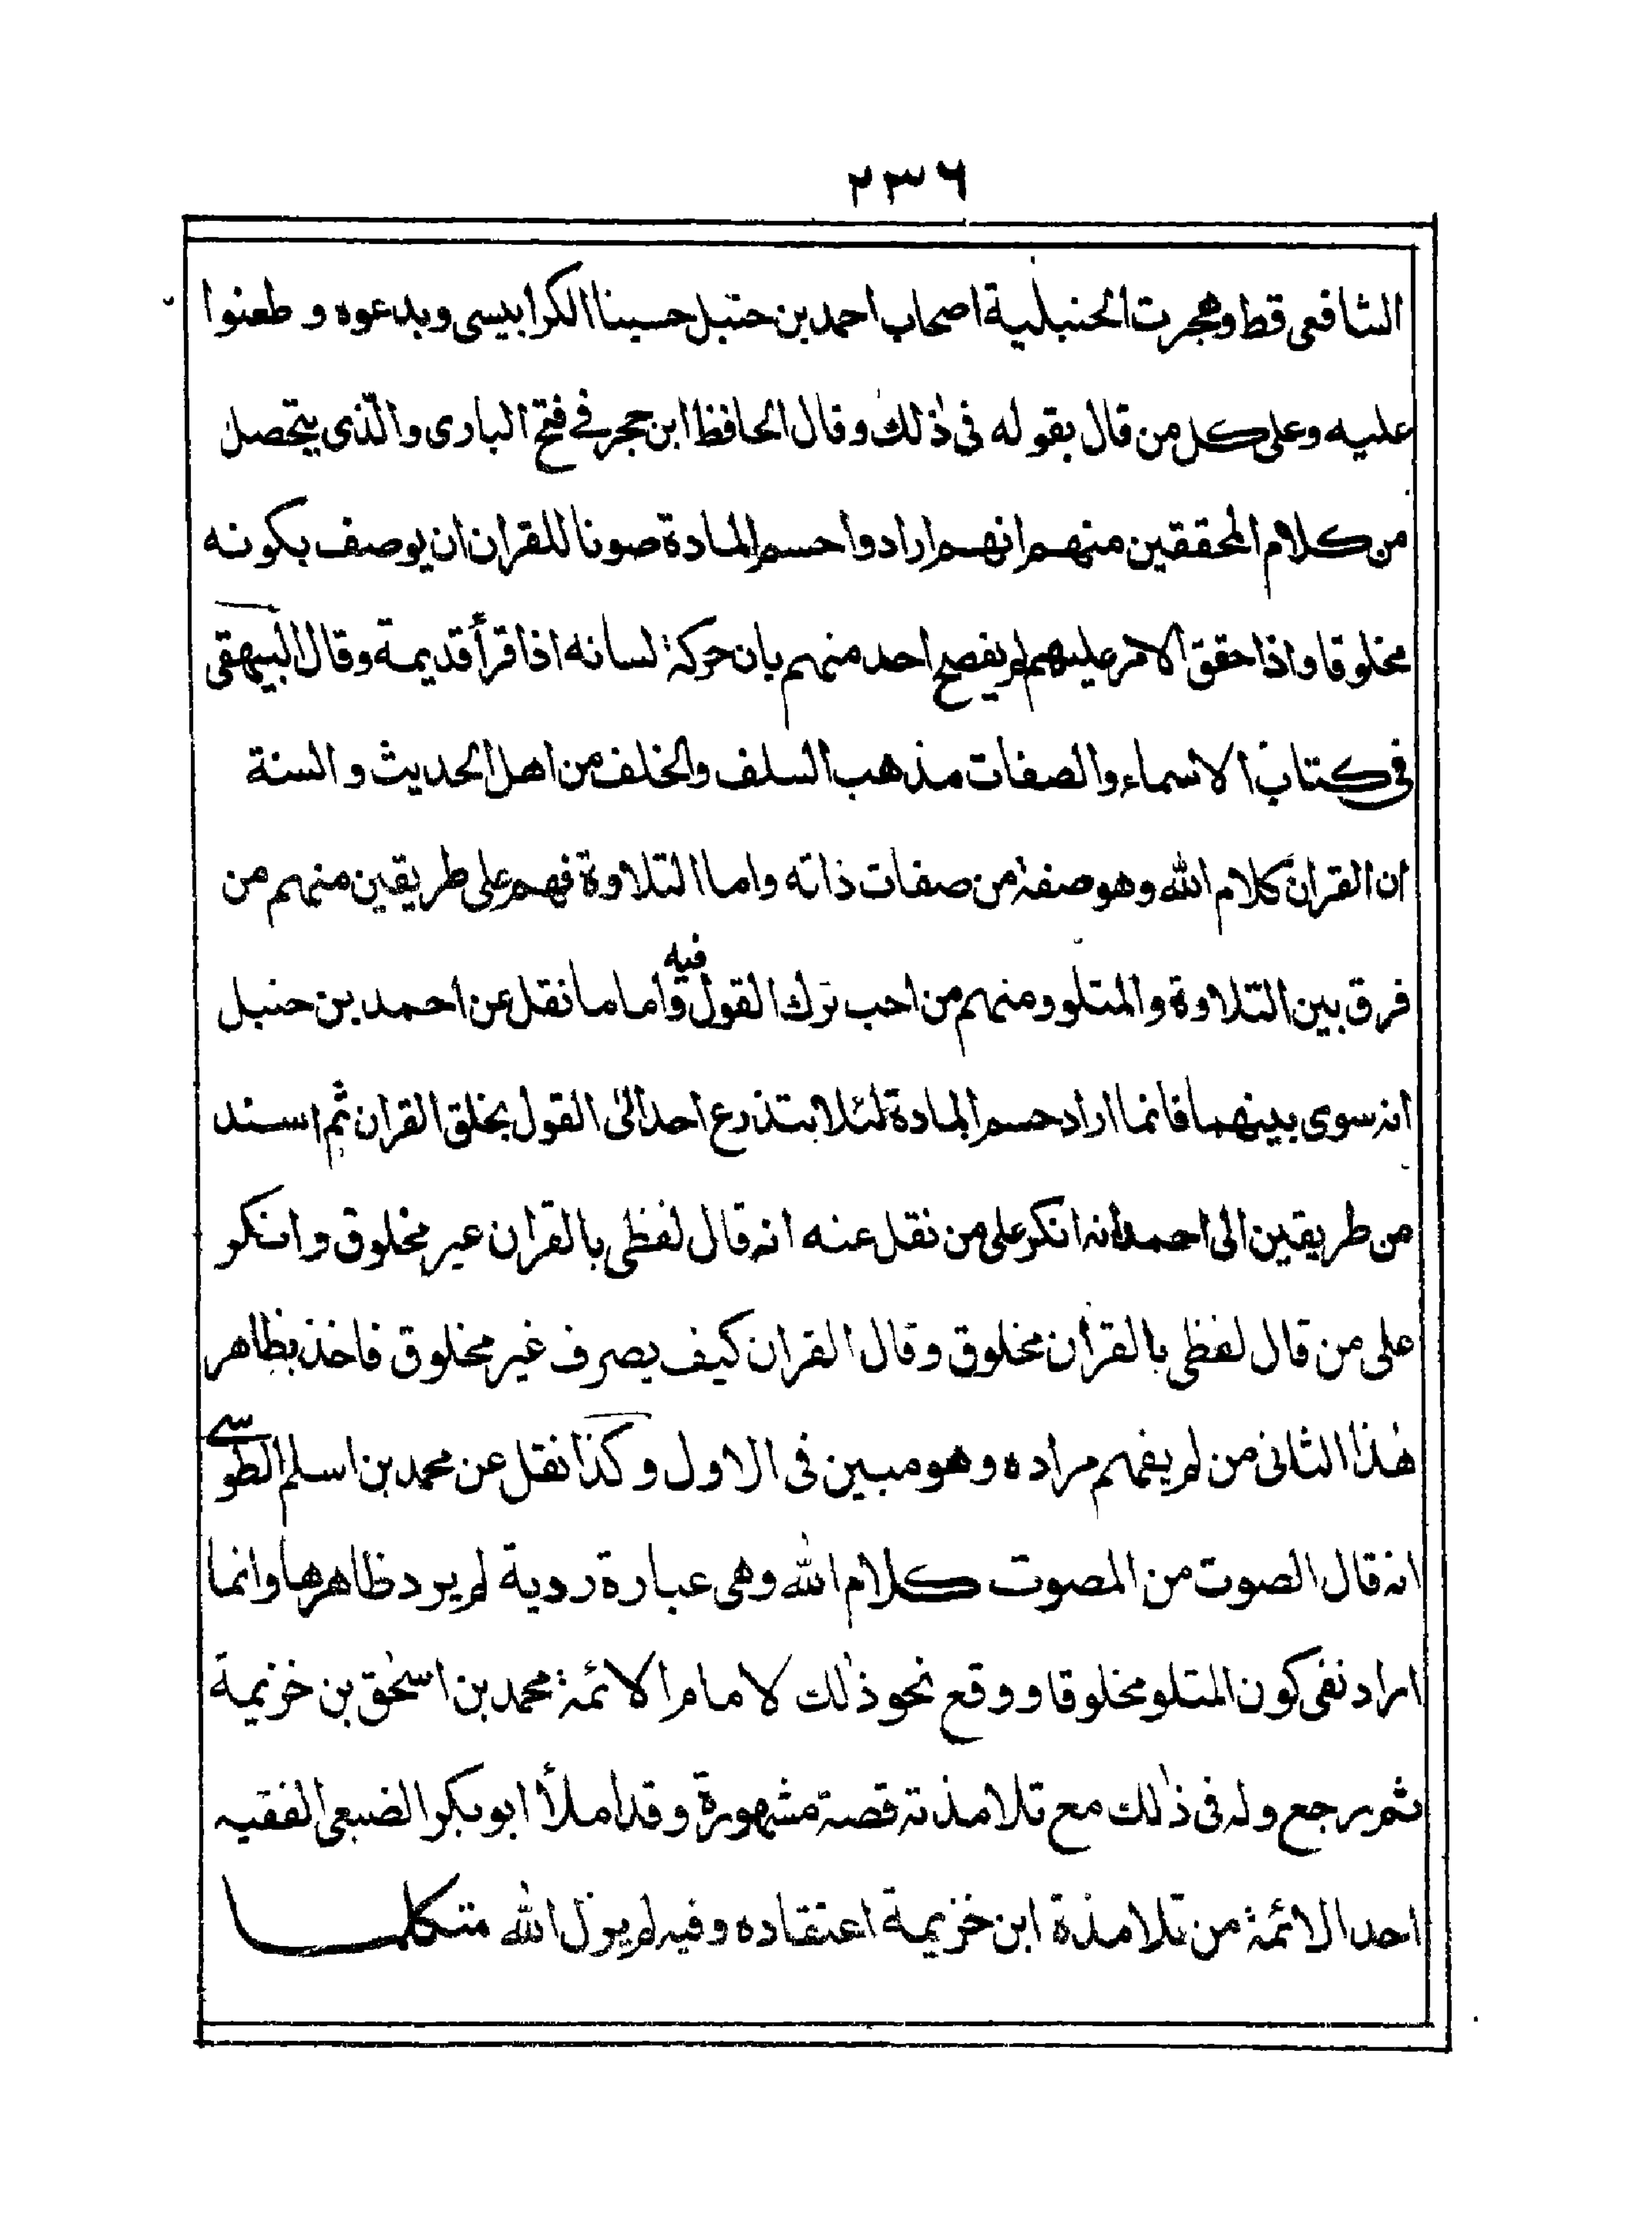 ٢٣٦
الشافعى قط وهجرت الحنبلية اصحاب احمد بن حنبل حسينا الكرابيسى وبدعوه و طعنوا
عليه وعلى كل من قال بقوله فى ذٰلك وقال الحافظ ابن حجر فے فتح البارى والّذى يتحصل
من كلام المحققين منهم انهم ارادوا حسم المادة صونا للقران ان يوصف بكونه
مخلوقا واذا حقق الامر عليهم لم يفصح احد منهم بان حركة لسانه اذا قرأ قديمة وقال البيهقى
فى كتاب الاسماء والصفات مذهب السلف والخلف من اهل الحديث و السنة
ان القران كلام الله وهو صفة من صفات ذاته واما التلاوة فهم على طريقين منهم من
فرق بين التلاوة والمتلو ومنهم من احب ترك القول فيه واما ما نقل عن احمد بن حنبل
انه سوى بينهما فانما اراد حسم المادة لئلا يتذرع احد الىٰ القول بخلق القران ثم اسند
من طريقين الى احمد انه انكر على من نقل عنه انه قال لفظى بالقران غير مخلوق وانكر
على من قال لفظى بالقرأن مخلوق وقال القران كيف يصرف غير مخلوق فاخذ بظاهر
هٰذا الثانى من لم يفهم مراده وهو مبين فى الاول وكذا نقل عن محمد بن اسلم الطوسے
انه قال الصوت من المصوت كلام الله وهى عبارة ردية لم يرد ظاهرها وانما
اراد نفى كون المتلو مخلوقا ووقع نحو ذٰلك لامام الائمة محمد بن اسحٰق بن خزيمة
ثم رجع وله فى ذٰلك مع تلامذته قصة مشهورة وقد املأ ابو بكر الضبعى الفقيه
احد الائمة من تلامذة ابن خزيمة اعتقاده وفيه لم يزل الله متكلما